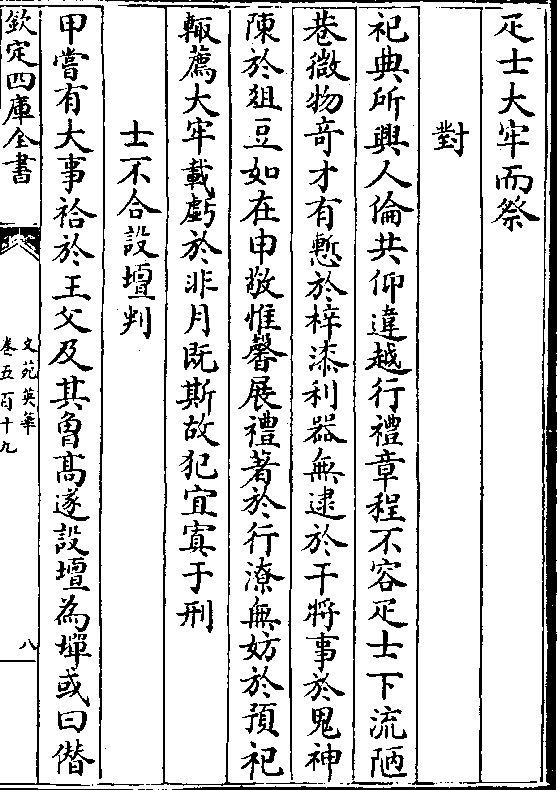 疋士大牢而祭
對
祀典所興人倫共仰違越行禮章程不容疋士下流陋
巷微物奇才有慙於梓漆利器無逮於干將事於鬼神
陳於俎豆如在申敬惟馨展禮著於行潦無妨於預祀
輙薦大牢載虧於非月既斯故犯宜寘于刑
士不合設壇判
甲嘗有大事祫於王父及其曾髙遂設壇為墠或曰僣
欽定四庫全書
文苑英華
卷五百十九
八